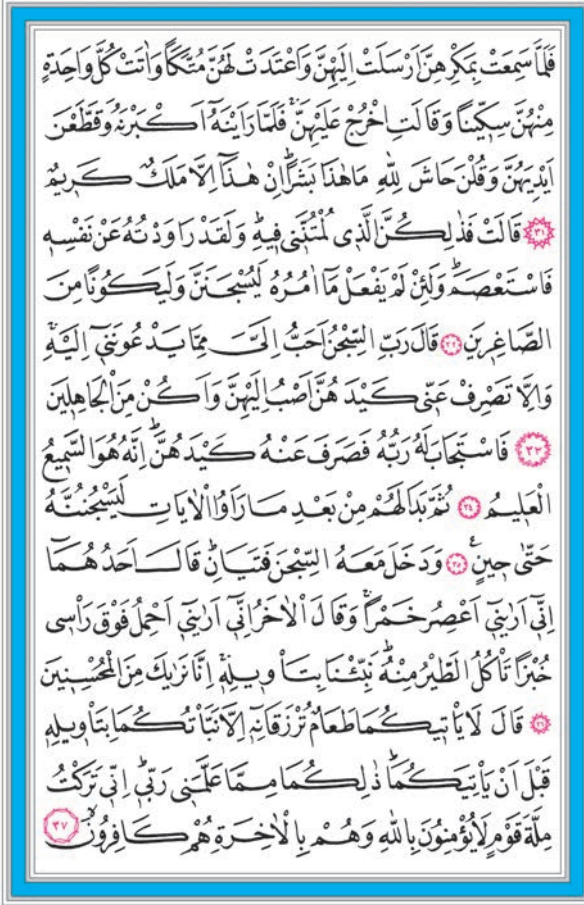 فَلَمَّا سَمِعَتْ بِمَكْرِهِنَّ اَرْسَلَتْ اِلَيْهِنَّ وَاَعْتَدَتْ لَهُنَّ مُتَّكَـًٔا وَاٰتَتْ كُلَّ وَاحِدَةٍ
مِنْهُنَّ سِكّ۪ينًا وَقَالَتِ اخْرُجْ عَلَيْهِنَّۚ فَلَمَّا رَاَيْنَهُٓ اَكْبَرْنَهُ وَقَطَّعْنَ
اَيْدِيَهُنَّ وَقُلْنَ حَاشَ لِلّٰهِ مَا هٰذَا بَشَرًاۜ اِنْ هٰذَٓا اِلَّا مَلَكٌ كَر۪يمٌ
﴿٣١﴾ قَالَتْ فَذٰلِكُنَّ الَّذ۪ي لُمْتُنَّن۪ي ف۪يهِۜ وَلَقَدْ رَاوَدْتُهُ عَنْ نَفْسِه۪
فَاسْتَعْصَمَۜ وَلَئِنْ لَمْ يَفْعَلْ مَٓا اٰمُرُهُ لَيُسْجَنَنَّ وَلَيَكُونًا مِنَ
الصَّاغِر۪ينَ ﴿٣٢﴾ قَالَ رَبِّ السِّجْنُ اَحَبُّ اِلَيَّ مِمَّا يَدْعُونَن۪ٓي اِلَيْهِۚ
وَاِلَّا تَصْرِفْ عَنّ۪ي كَيْدَهُنَّ اَصْبُ اِلَيْهِنَّ وَاَكُنْ مِنَ الْجَاهِل۪ينَ
﴿٣٣﴾ فَاسْتَجَابَ لَهُ رَبُّهُ فَصَرَفَ عَنْهُ كَيْدَهُنَّۜ اِنَّهُ هُوَ السَّم۪يعُ
الْعَل۪يمُ ﴿٣٤﴾ ثُمَّ بَدَا لَهُمْ مِنْ بَعْدِ مَا رَاَوُا الْاٰيَاتِ لَيَسْجُنُنَّهُ
حَتّٰى ح۪ينٍ۟ ﴿٣٥﴾ وَدَخَلَ مَعَهُ السِّجْنَ فَتَيَانِۜ قَالَ اَحَدُهُمَٓا
اِنّ۪ٓي اَرٰين۪ٓي اَعْصِرُ خَمْرًاۚ وَقَالَ الْاٰخَرُ اِنّ۪ٓي اَرٰين۪ٓي اَحْمِلُ فَوْقَ رَأْس۪ي
خُبْزًا تَأْكُلُ الطَّيْرُ مِنْهُۜ نَبِّئْنَا بِتَأْو۪يلِه۪ۚ اِنَّا نَرٰيكَ مِنَ الْمُحْسِن۪ينَ
﴿٣٦﴾ قَالَ لَا يَأْت۪يكُمَا طَعَامٌ تُرْزَقَانِه۪ٓ اِلَّا نَبَّأْتُكُمَا بِتَأْو۪يلِه۪
قَبْلَ اَنْ يَأْتِيَكُمَاۜ ذٰلِكُمَا مِمَّا عَلَّمَن۪ي رَبّ۪يۜ اِنّ۪ي تَرَكْتُ
مِلَّةَ قَوْمٍ لَا يُؤْمِنُونَ بِاللّٰهِ وَهُمْ بِالْاٰخِرَةِ هُمْ كَافِرُونَۙ ﴿٣٧﴾